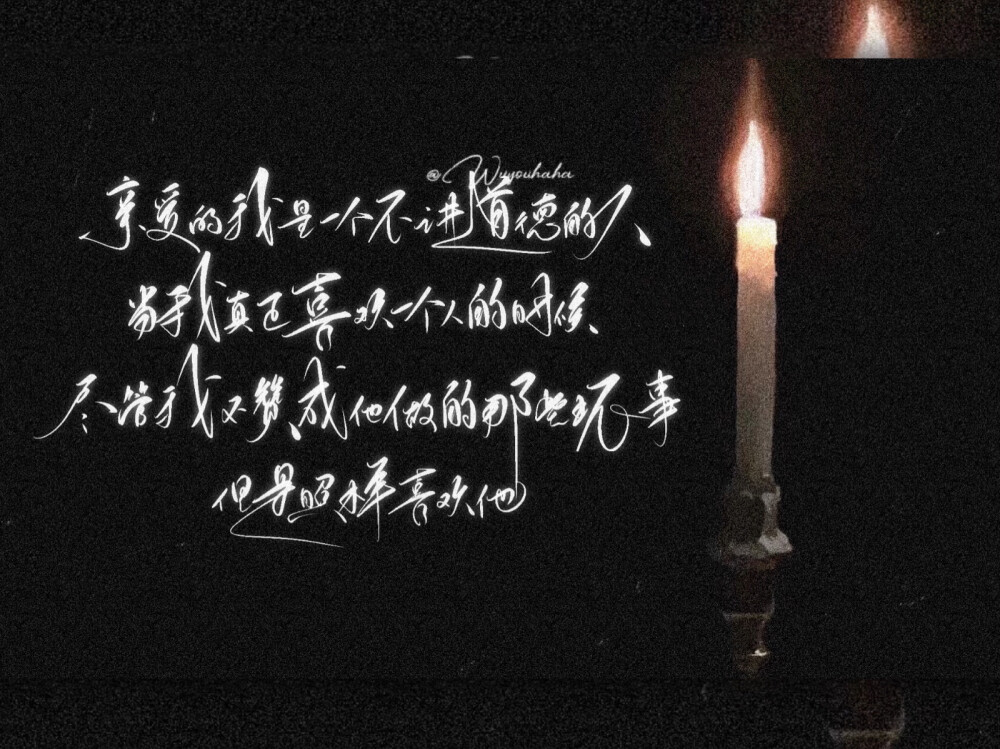 @Wuyouhaha
亲爱的我是一个不讲道德的人
当我真正喜欢一个人的时候
尽管我不赞成他做的那些玩事
但是照样喜欢他